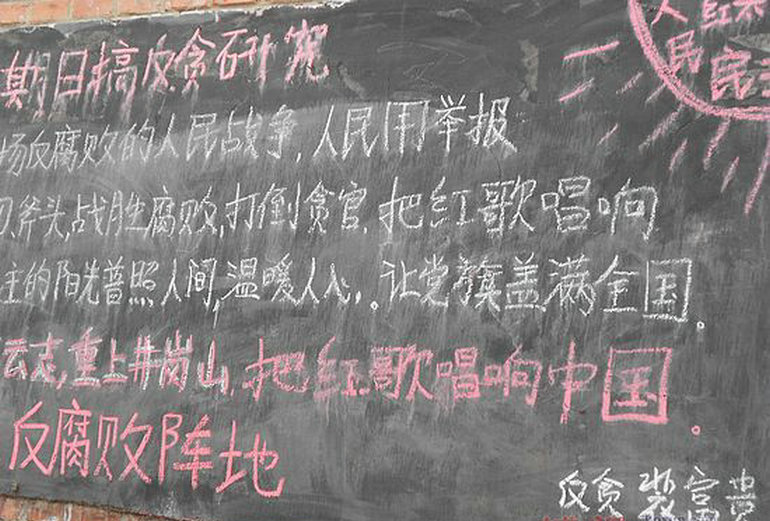 人 红太
民 民主
期日搞反贪研究
场反腐败的人民战争,人民用举报
刀,斧头,战胜腐败,打倒贪官.把红歌唱响
主的阳光普照人间,温暖人心。让党旗盖满全国。
云志,重上井岗山,把红歌唱响中国。
反腐败阵地
反贪 裴富贵